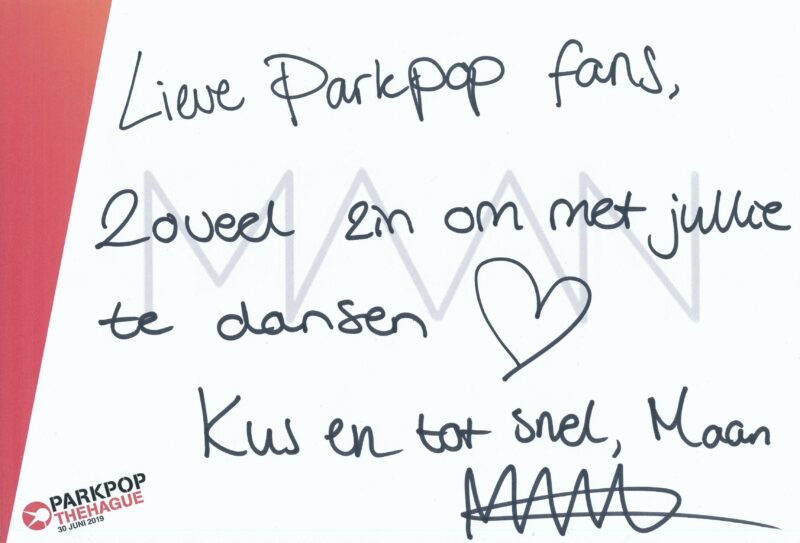 Lieve Parkpop fans,
MAAN
Zoveel zin om met jullie
te dansen
Kus en tot snel, Maan
PARKPOP
THEHAGUE
30 JUNI 2019